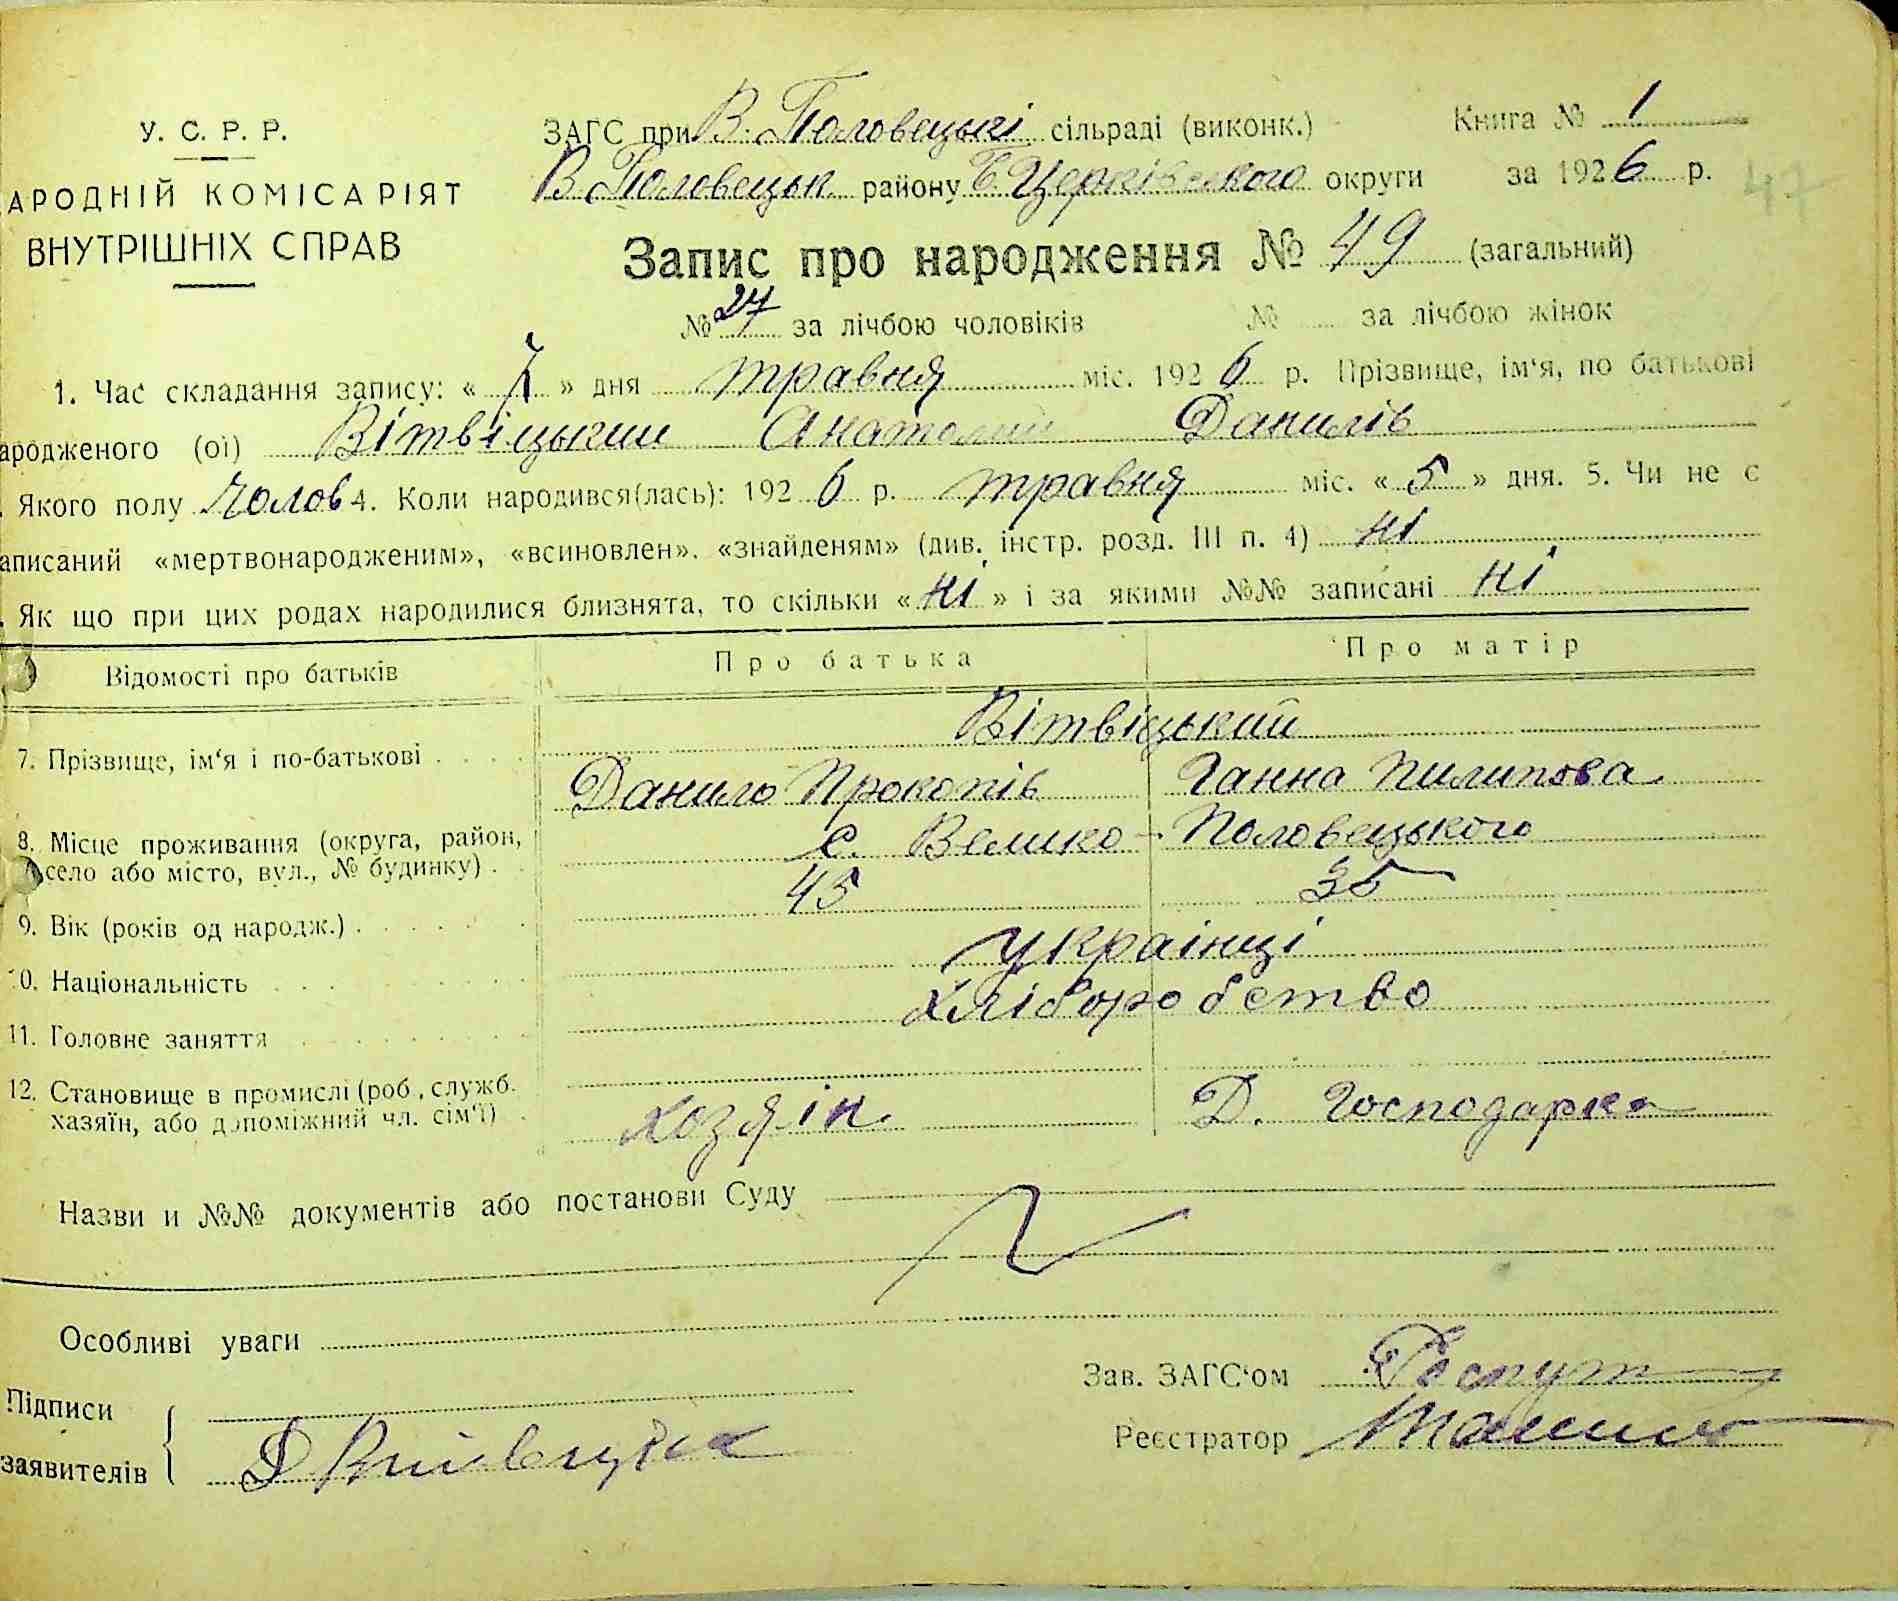 У. С. Р. Р.
АРОДНІЙ КОМІСАРІЯТ
ВНУТРІШНІХ СПРАВ
ЗАГС при В. Половецькі сільраді (виконк.)
Книга № 1
В. Половецьк району Б. Церківського округи
за 1926 р.
47
Запис про народження № 49 (загальний)
№ 27 за лічбою чоловіків № за лічбою жінок
1. Час складання запису: « 7 » дня травня міс. 1926 р. Прізвище, ім'я, по батькові
ародженого (ої) Вітвіцький Анатолий Данилів
. Якого полу Чолов 4. Коли народився(лась): 1926 р. травня міс. « 5 » дня. 5. Чи не є
аписаний «мертвонародженим», «всиновлен», «знайденям» (див. інстр. розд. III п. 4) ні
. Як що при цих родах народилися близнята, то скільки « ні » і за якими №№ записані ні
Відомості про батьків
Про батька
Про матір
7. Прізвище, ім'я і по-батькові
Вітвіцький
Данило Прокопів
Ганна Пилипова
8. Місце проживання (округа, район,
село або місто, вул., № будинку)
с. Велико-Половецького
9. Вік (років од народж.)
45
35
10. Національність
українці
11. Головне заняття
хліборобство
12. Становище в промислі (роб., служб.
хазяїн, або допоміжний чл. сім'ї)
хозяін
Д. Господарка
Назви и №№ документів або постанови Суду
Особливі уваги
Підписи
заявителів
Зав. ЗАГС'ом
Реєстратор